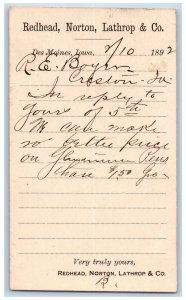 Redhead, Norton, Lathrop & Co.
Des Moines, Iowa. 7/10 1892
R. E. Boyer
Creston Ia
in reply to
yours of 5th
We can make
no better price
on Pens
than 9.50 Gro.
Very truly yours,
REDHEAD, NORTON, LATHROP & CO.
R.